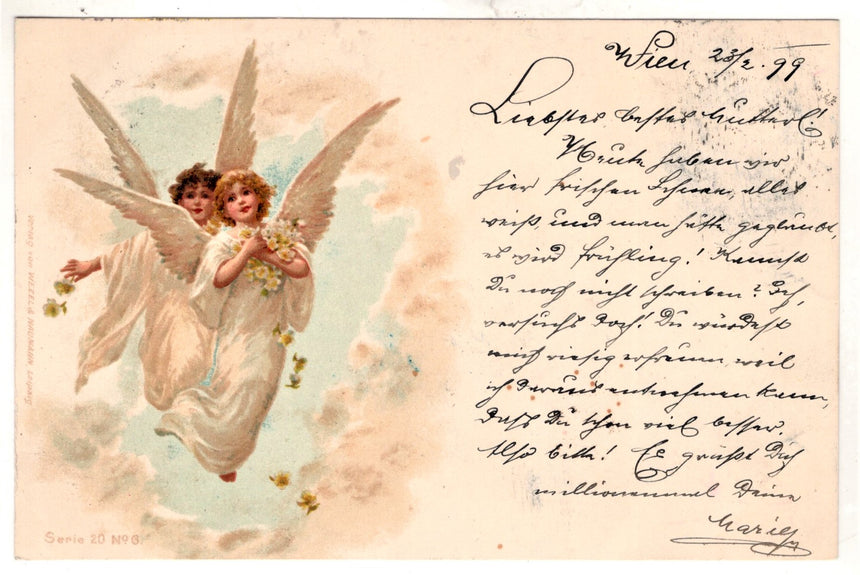 Wien 23/2. 99
Liebstes, bestes Mutterl!
Heute haben wir
hier frischen Schnee, alles
weiß, und man hätte geglaubt,
es wird Frühling! Kannst
Du noch nicht schreiben? Geh,
versuchs doch! Du würdest
mich riesig erfreuen, weil
ich daraus entnehmen kann,
dass Du schon viel besser.
Also bitte! Es grüßt Dich
millionenmal Deine
Marie
Verlag von WEZEL & NAUMANN Leipzig
Serie 20 No 6.